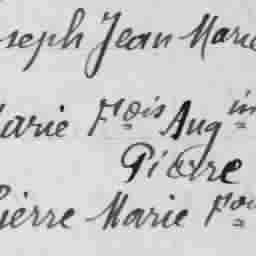 oseph Jean Marie
Marie Fçois Augin
Pierre
Pierre Marie Fçoi